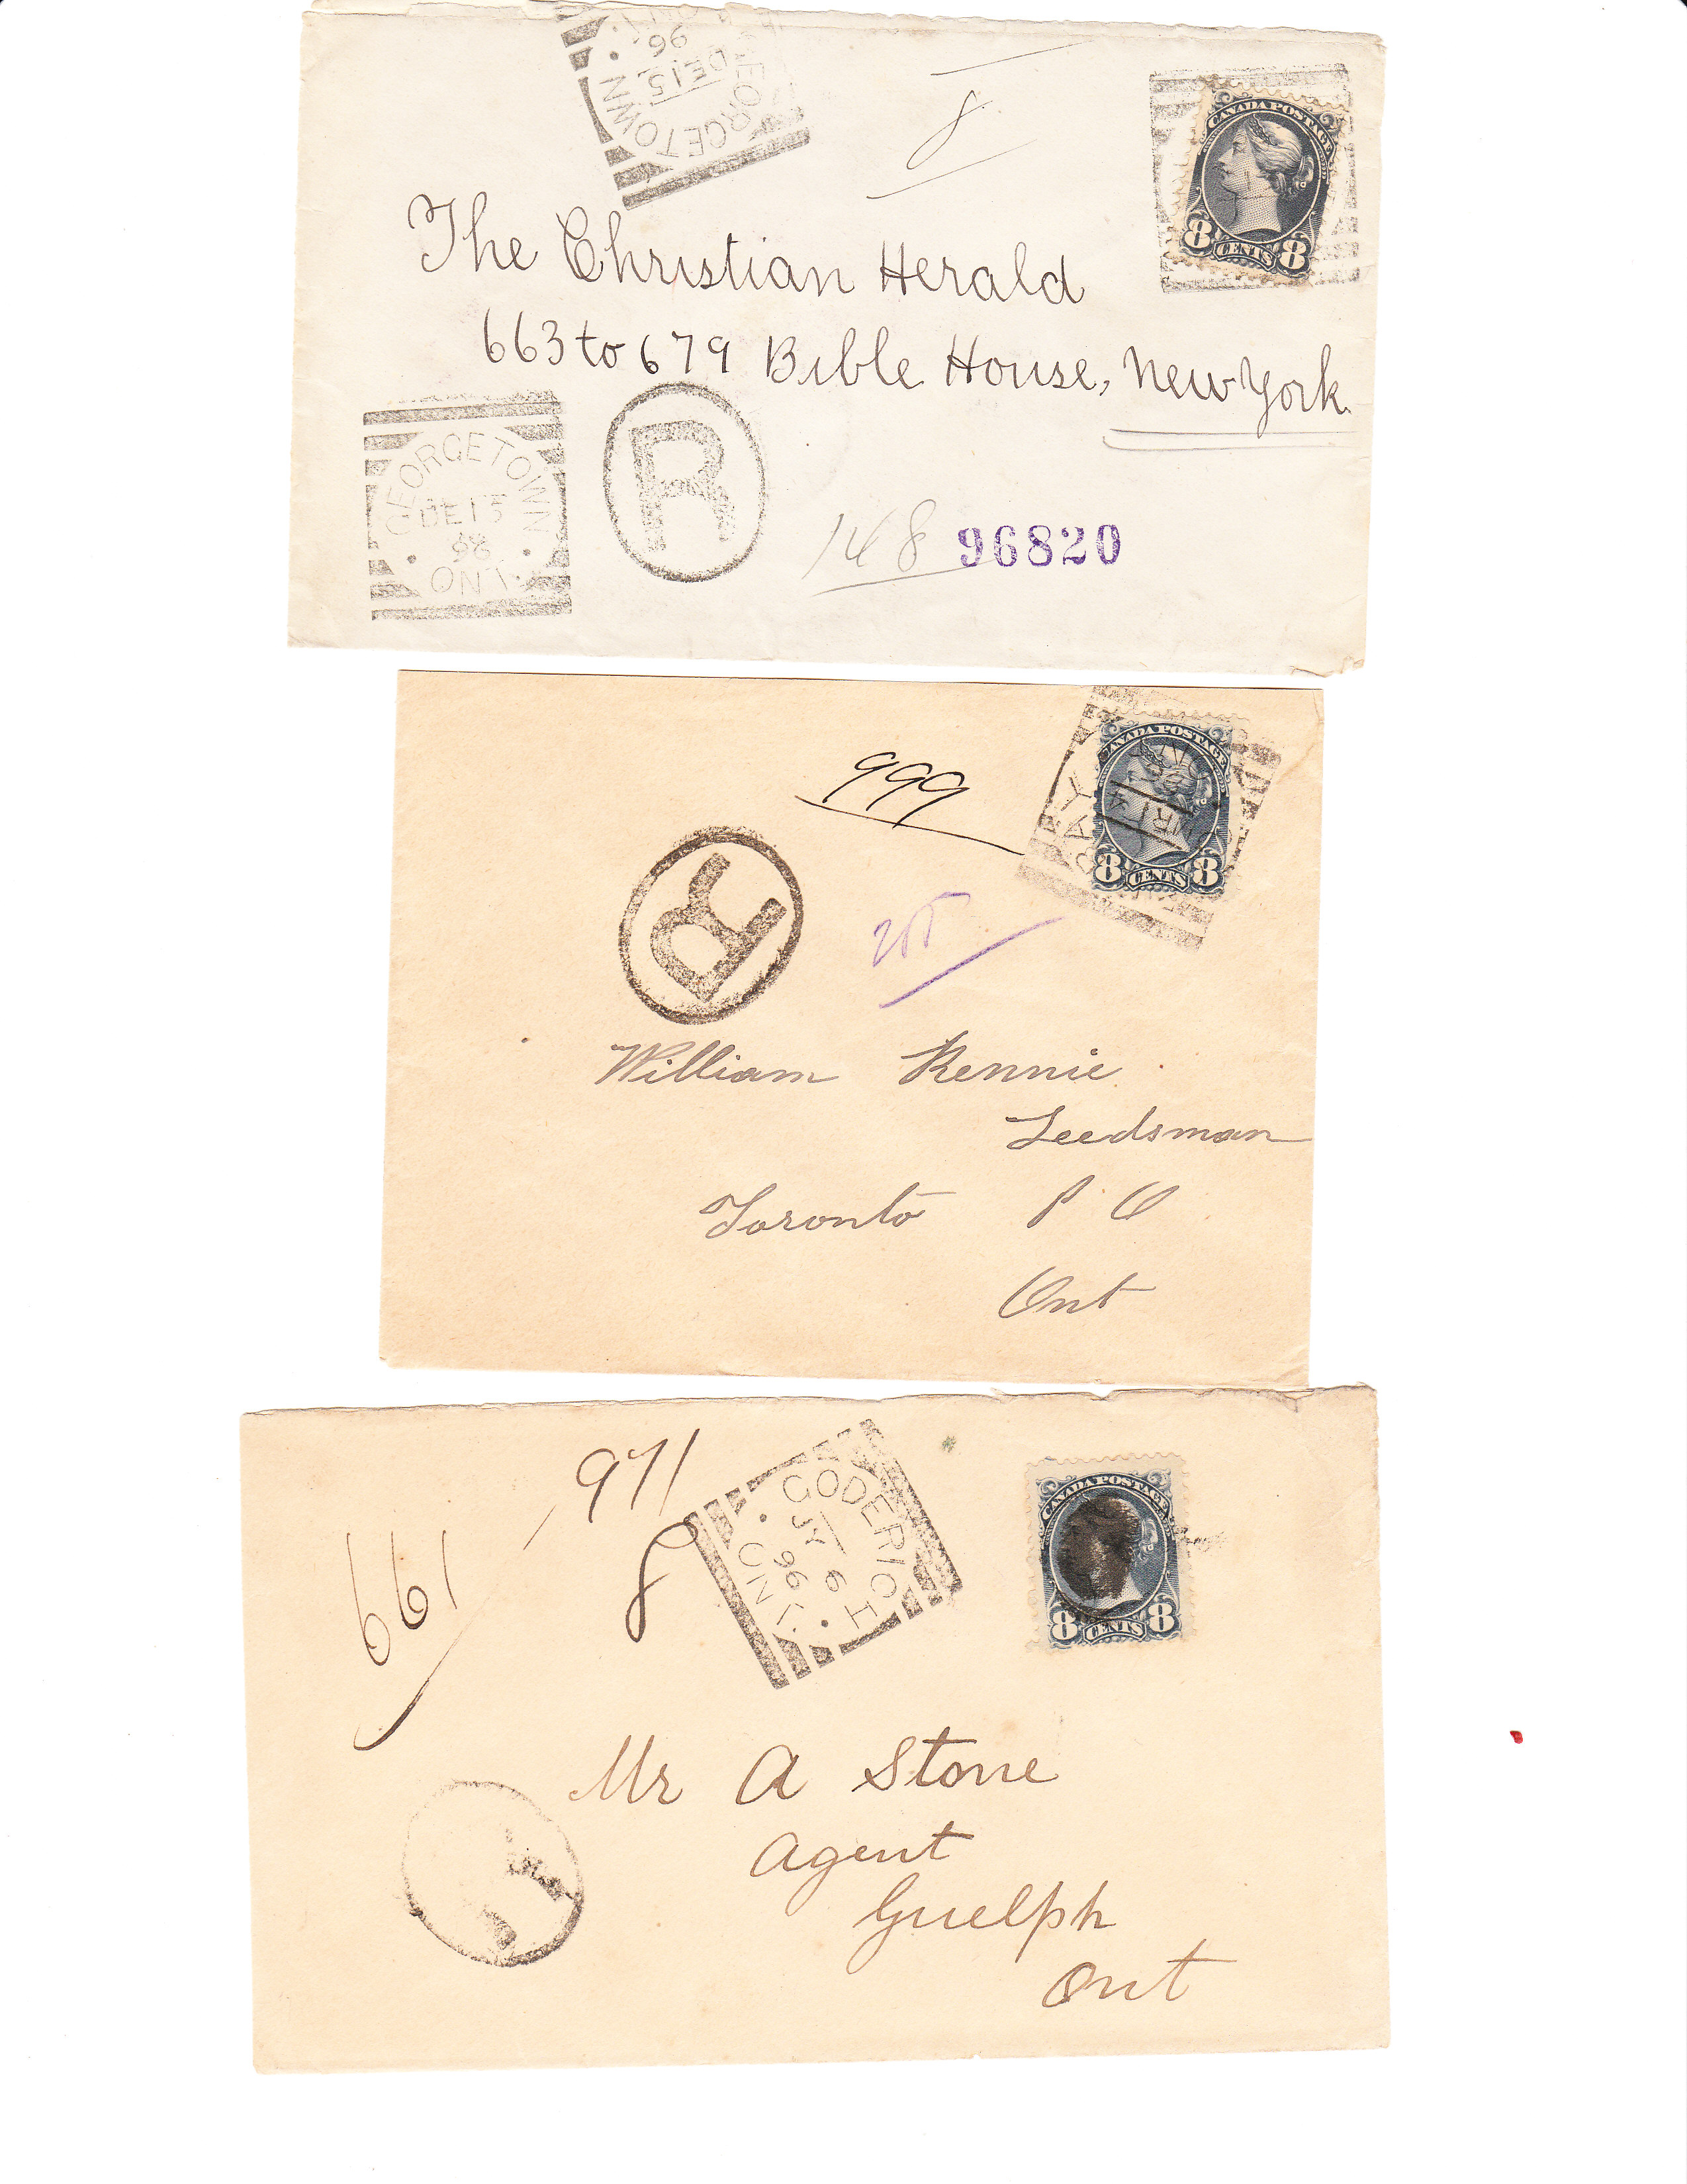 GEORGETOWN
DE 15
96
ONT.
8
CANADA POSTAGE
8 CENTS 8
The Christian Herald
663 to 679 Bible House, New York
GEORGETOWN
DE 15
96
ONT.
R
148
96820
999
CANADA POSTAGE
8 CENTS 8
R
William Rennie
Seedsman
Toronto P.O
Ont
971
661
8
GODERICH
JY 6
96
ONT.
CANADA POSTAGE
8 CENTS 8
Mr A Stone
Agent
Guelph
Ont